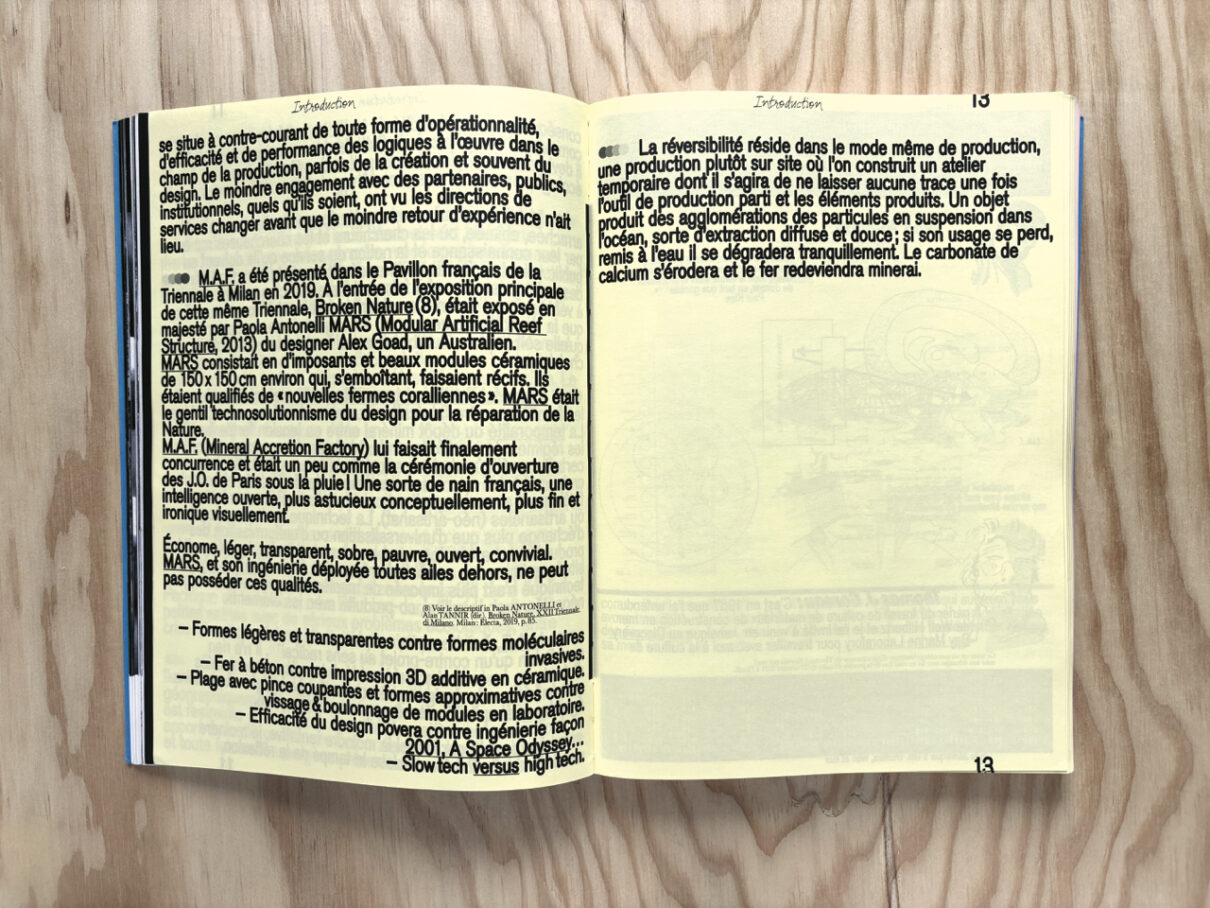 Introduction
se situe à contre-courant de toute forme d'opérationnalité,
d'efficacité et de performance des logiques à l'œuvre dans le
champ de la production, parfois de la création et souvent du
design. Le moindre engagement avec des partenaires, publics,
institutionnels, quels qu'ils soient, ont vu les directions de
services changer avant que le moindre retour d'expérience n'ait
lieu.
M.A.F. a été présenté dans le Pavillon français de la
Triennale à Milan en 2019. À l'entrée de l'exposition principale
de cette même Triennale, Broken Nature (8), était exposé en
majesté par Paola Antonelli MARS (Modular Artificial Reef
Structure, 2013) du designer Alex Goad, un Australien.
MARS consistait en d'imposants et beaux modules céramiques
de 150 x 150 cm environ qui, s'emboîtant, faisaient récifs. Ils
étaient qualifiés de « nouvelles fermes coralliennes ». MARS était
le gentil technosolutionnisme du design pour la réparation de la
Nature.
M.A.F. (Mineral Accretion Factory) lui faisait finalement
concurrence et était un peu comme la cérémonie d'ouverture
des J.O. de Paris sous la pluie ! Une sorte de nain français, une
intelligence ouverte, plus astucieux conceptuellement, plus fin et
ironique visuellement.
Économe, léger, transparent, sobre, pauvre, ouvert, convivial.
MARS, et son ingénierie déployée toutes ailes dehors, ne peut
pas posséder ces qualités.
(8) Voir le descriptif in Paola ANTONELLI et
Alan TANNIR (dir.), Broken Nature, XXII Triennale
di Milano, Milan : Electa, 2019, p. 85.
– Formes légères et transparentes contre formes moléculaires
invasives.
– Fer à béton contre impression 3D additive en céramique.
– Plage avec pince coupantes et formes approximatives contre
vissage & boulonnage de modules en laboratoire.
– Efficacité du design povera contre ingénierie façon
2001, A Space Odyssey…
– Slow tech versus high tech.
Introduction
13
La réversibilité réside dans le mode même de production,
une production plutôt sur site où l'on construit un atelier
temporaire dont il s'agira de ne laisser aucune trace une fois
l'outil de production parti et les éléments produits. Un objet
produit des agglomérations des particules en suspension dans
l'océan, sorte d'extraction diffuse et douce ; si son usage se perd,
remis à l'eau il se dégradera tranquillement. Le carbonate de
calcium s'érodera et le fer redeviendra minerai.
13